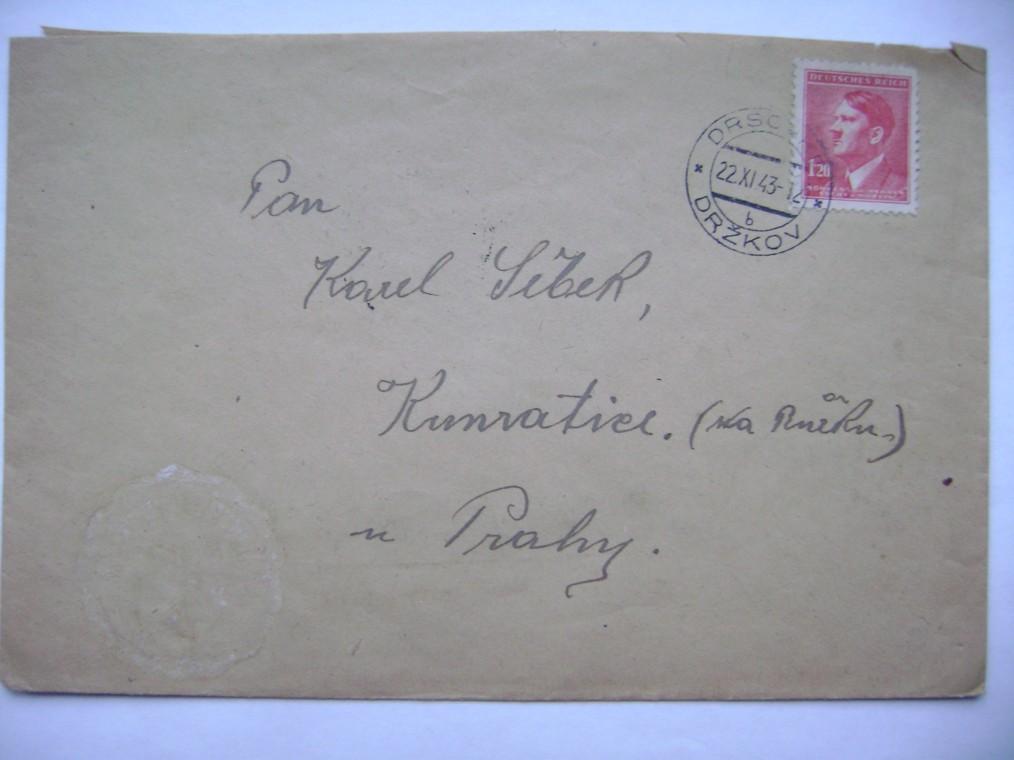 DEUTSCHES REICH
1.20
22.XI.43-12
b
DRŽKOV
Pan
Karel Sibek,
Kunratice. (na
u Prahy.